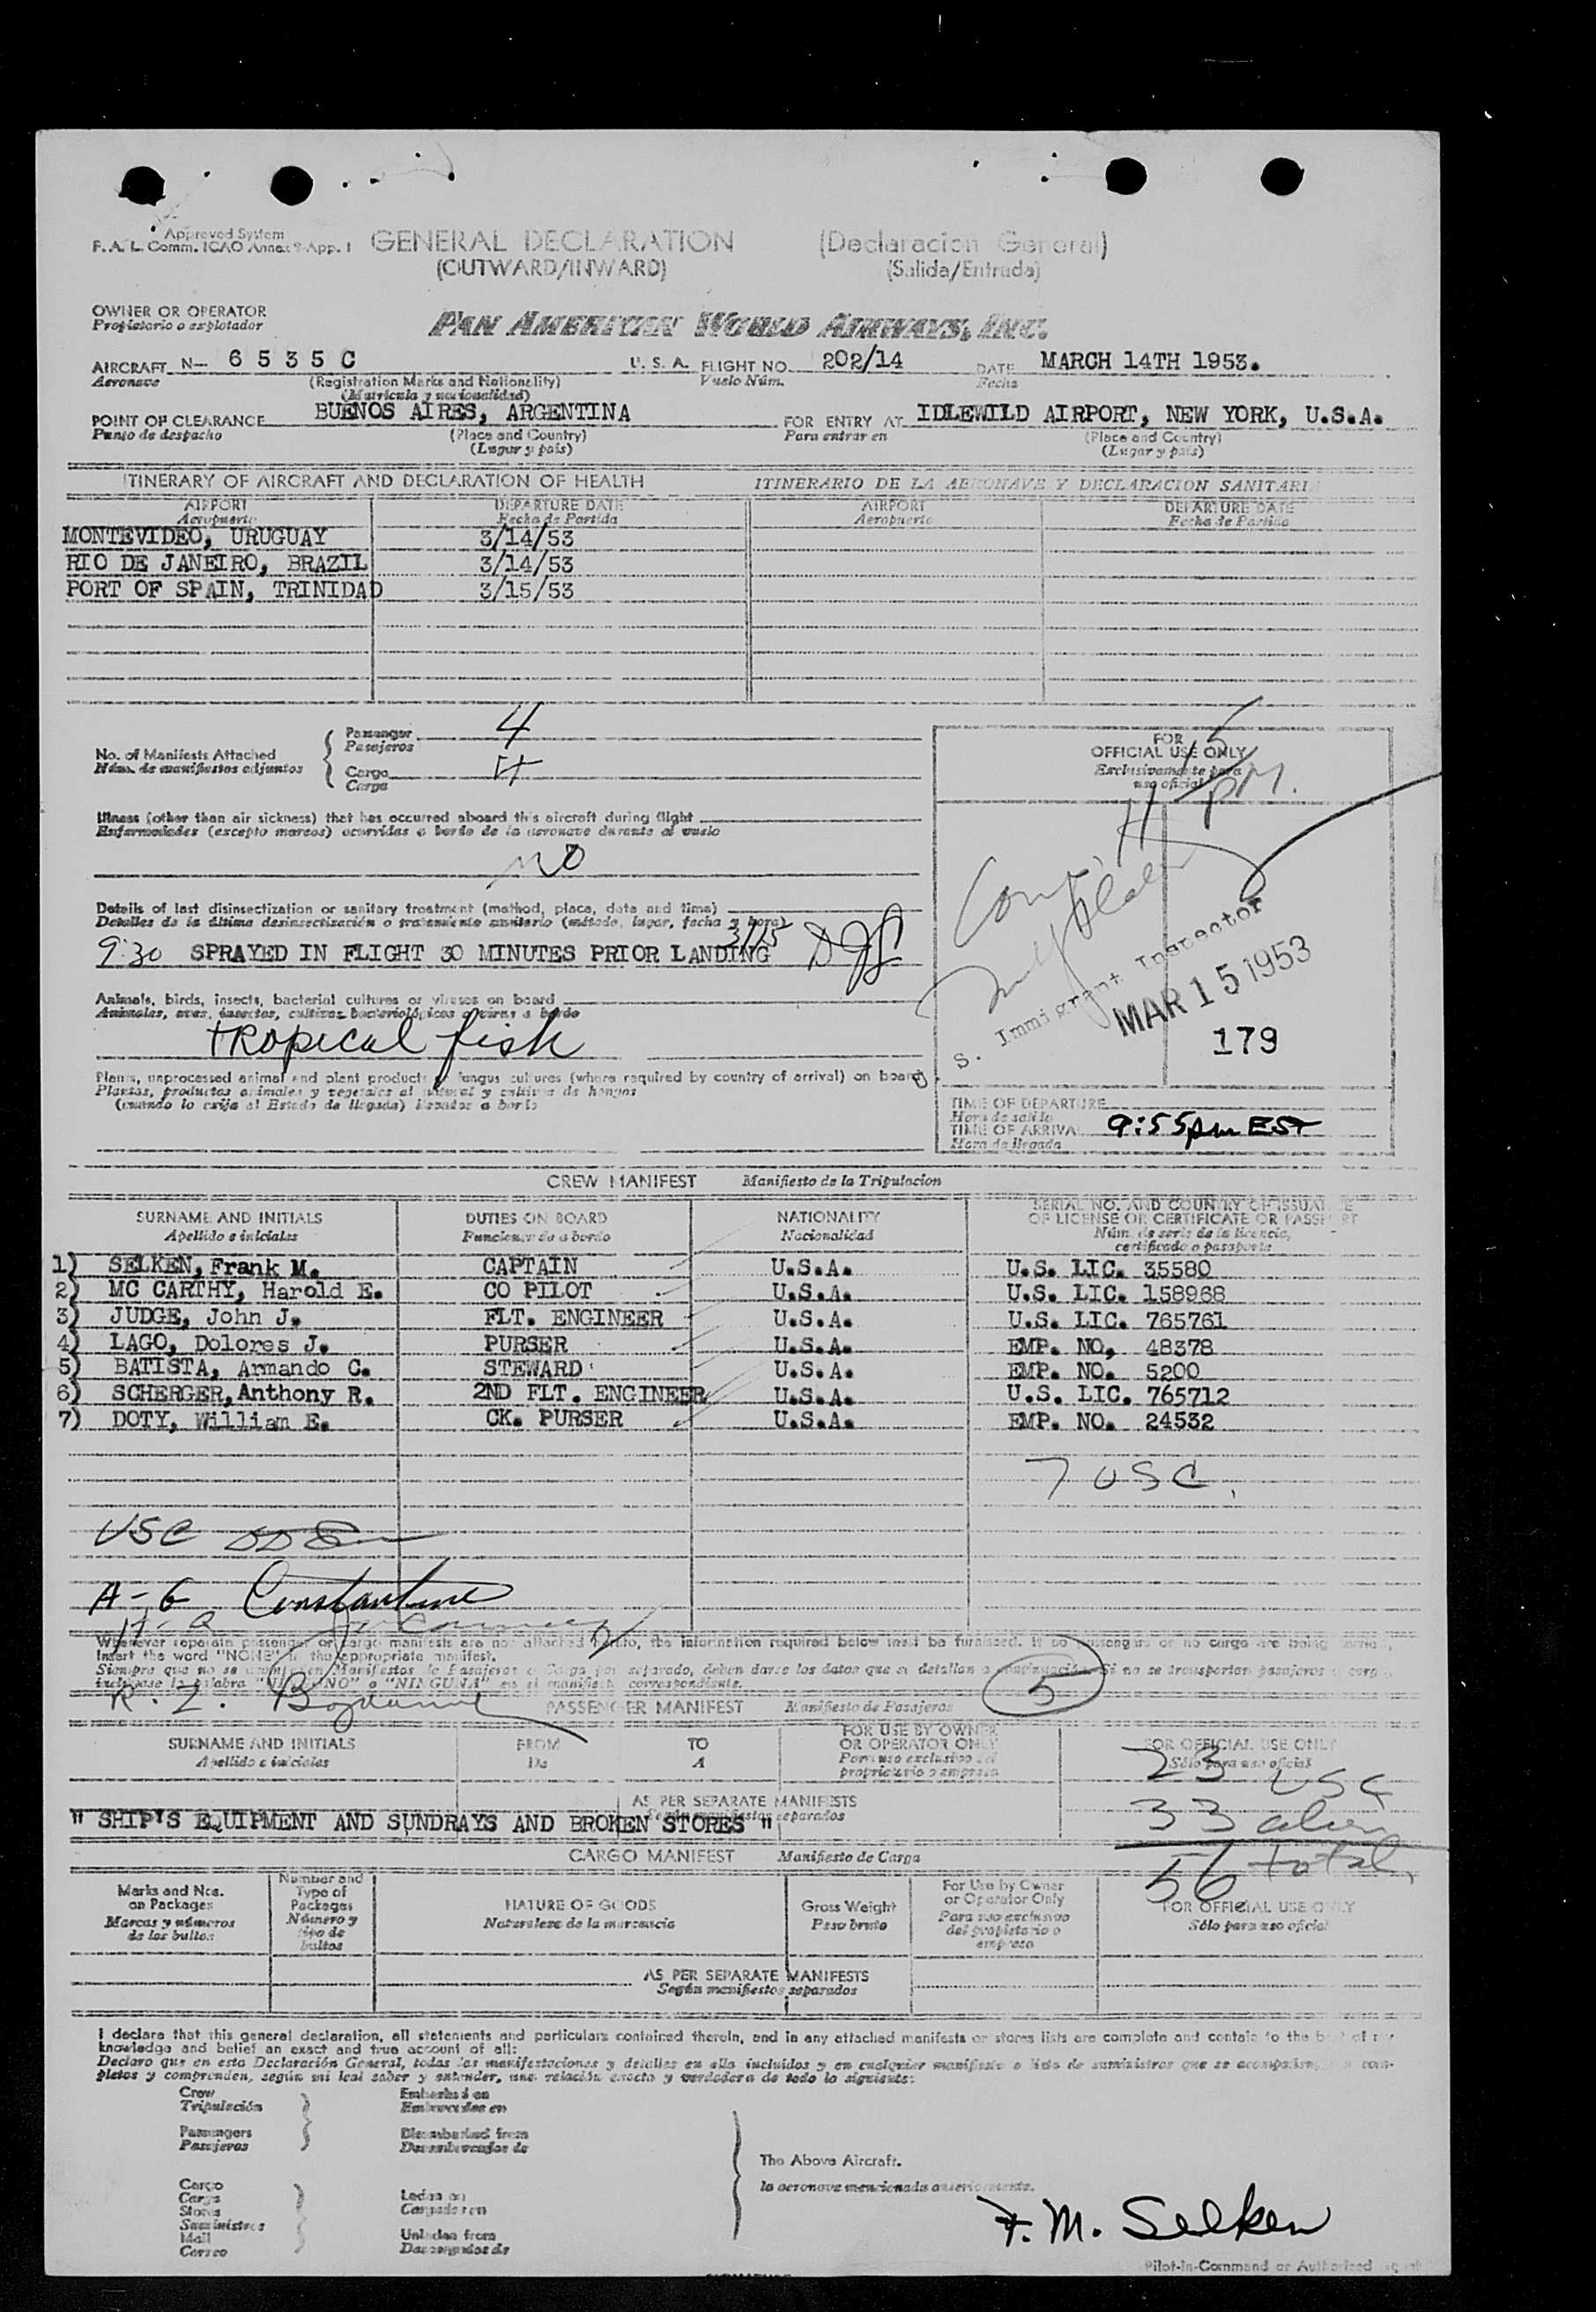 Approved System
F. A. L. Comm. ICAO Annex 9-App. 1
GENERAL DECLARATION (Declaracion General)
(OUTWARD/INWARD) (Salida/Entrada)
OWNER OR OPERATOR
Propietario o explotador
PAN AMERICAN WORLD AIRWAYS, INC.
AIRCRAFT N- 6 5 3 5 C U. S. A. FLIGHT NO. 202/14 DATE MARCH 14TH 1953.
Aeronave (Registration Marks and Nationality) Vuelo Núm. Fecha
(Matricula y nacionalidad)
POINT OF CLEARANCE BUENOS AIRES, ARGENTINA FOR ENTRY AT IDLEWILD AIRPORT, NEW YORK, U.S.A.
Punto de despacho (Place and Country) Para entrar en (Place and Country)
(Lugar y país) (Lugar y país)
ITINERARY OF AIRCRAFT AND DECLARATION OF HEALTH ITINERARIO DE LA AERONAVE Y DECLARACION SANITARIA
AIRPORT DEPARTURE DATE AIRPORT DEPARTURE DATE
Aeropuerto Fecha de Partida Aeropuerto Fecha de Partida
MONTEVIDEO, URUGUAY 3/14/53
RIO DE JANEIRO, BRAZIL 3/14/53
PORT OF SPAIN, TRINIDAD 3/15/53
No. of Manifests Attached
Núm. de manifiestos adjuntos
Passenger 4
Pasajeros
Cargo
Carga
FOR
OFFICIAL USE ONLY
Exclusivamente para
uso oficial
Illness (other than air sickness) that has occurred aboard this aircraft during flight
Enfermedades (excepto mareos) ocurridas a bordo de la aeronave durante el vuelo
no
Details of last disinsectization or sanitary treatment (method, place, date and time)
Detalles de la última desinsectización o tratamiento sanitario (método, lugar, fecha y hora)
3/15
9:30 SPRAYED IN FLIGHT 30 MINUTES PRIOR LANDING
Animals, birds, insects, bacterial cultures or viruses on board
Animales, aves, insectos, cultivos bacteriológicos o virus a bordo
tropical fish
S. Immigrant Inspector
MAR 15 1953
179
Plants, unprocessed animal and plant products or fungus cultures (where required by country of arrival) on board
Plantas, productos animales y vegetales al natural y cultivos de hongos
(cuando lo exija el Estado de llegada) llevados a bordo
TIME OF DEPARTURE
Hora de salida
TIME OF ARRIVAL 9:55pm EST
Hora de llegada
CREW MANIFEST Manifiesto de la Tripulacion
SURNAME AND INITIALS DUTIES ON BOARD NATIONALITY SERIAL NO. AND COUNTRY OF ISSUANCE OF LICENSE OR CERTIFICATE OR PASSPORT
Apellido e iniciales Funciones a bordo Nacionalidad Núm. de serie de la licencia, certificado o pasaporte
1) SELKEN, Frank M. CAPTAIN U.S.A. U.S. LIC. 35580
2) MC CARTHY, Harold E. CO PILOT U.S.A. U.S. LIC. 158968
3) JUDGE, John J. FLT. ENGINEER U.S.A. U.S. LIC. 765761
4) LAGO, Dolores J. PURSER U.S.A. EMP. NO. 48378
5) BATISTA, Armando C. STEWARD U.S.A. EMP. NO. 5200
6) SCHERGER, Anthony R. 2ND FLT. ENGINEER U.S.A. U.S. LIC. 765712
7) DOTY, William E. CK. PURSER U.S.A. EMP. NO. 24532
7 USC.
USC
A-G Constantine
Whenever separate passenger or cargo manifests are not attached hereto, the information required below must be furnished. If no passengers or no cargo are being carried,
insert the word "NONE" in the appropriate manifest.
5
PASSENGER MANIFEST Manifiesto de Pasajeros
SURNAME AND INITIALS FROM TO FOR USE BY OWNER OR OPERATOR ONLY FOR OFFICIAL USE ONLY
Apellido e iniciales De A Para uso exclusivo del propietario o empresa Sólo para uso oficial
23 USC
AS PER SEPARATE MANIFESTS
Según manifiestos separados
33 alien
" SHIP'S EQUIPMENT AND SUNDRAYS AND BROKEN STORES "
56 total
CARGO MANIFEST Manifiesto de Carga
Marks and Nos. on Packages Number and Type of Packages NATURE OF GOODS Gross Weight For Use by Owner or Operator Only FOR OFFICIAL USE ONLY
Marcas y números de los bultos Número y tipo de bultos Naturaleza de la mercancia Peso bruto Para uso exclusivo del propietario o empresa Sólo para uso oficial
AS PER SEPARATE MANIFESTS
Según manifiestos separados
I declare that this general declaration, all statements and particulars contained therein, and in any attached manifests or stores lists are complete and contain to the best of my
knowledge and belief an exact and true account of all:
Declaro que en esta Declaración General, todas las manifestaciones y detalles en ella incluidos y en cualquier manifiesto o lista de suministros que se acompañen, son com-
pletos y comprenden, según mi leal saber y entender, una relación exacta y verdadera de todo lo siguiente:
Crew Embarked on
Tripulación Embarcados en
Passengers Disembarked from
Pasajeros Desembarcados de
The Above Aircraft.
la aeronave mencionada anteriormente.
Cargo
Carga Laden on
Stores Cargados en
Suministros
Mail Unladen from
Correo Descargados de
F. M. Selken
Pilot-in-Command or Authorized Agent